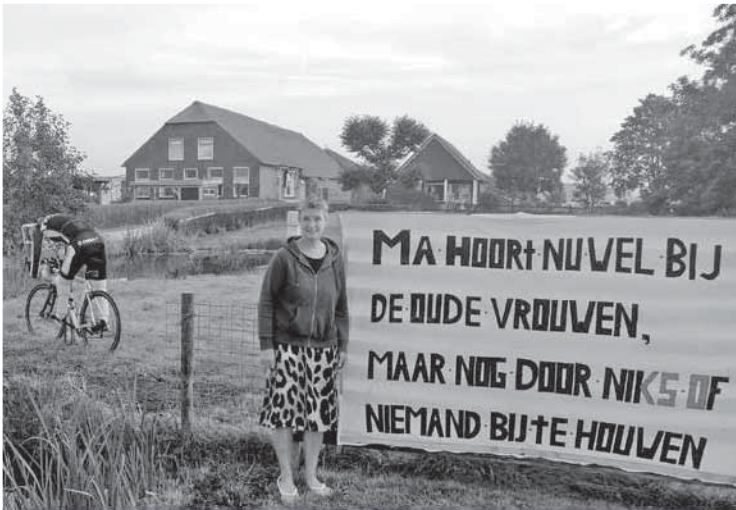 MA·HOORt·NU·WEL·BIJ
DE·OUDE·VROUWEN,
MAAR·NOG·DOOR·NIKS·OF
NIEMAND·BIJ·tE·HOUWEN